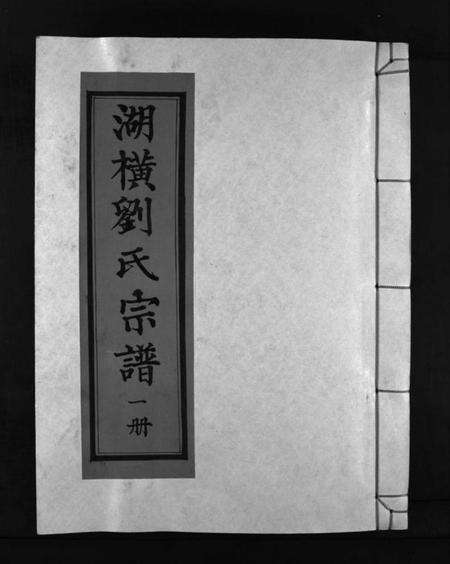 湖橫劉氏宗譜一册